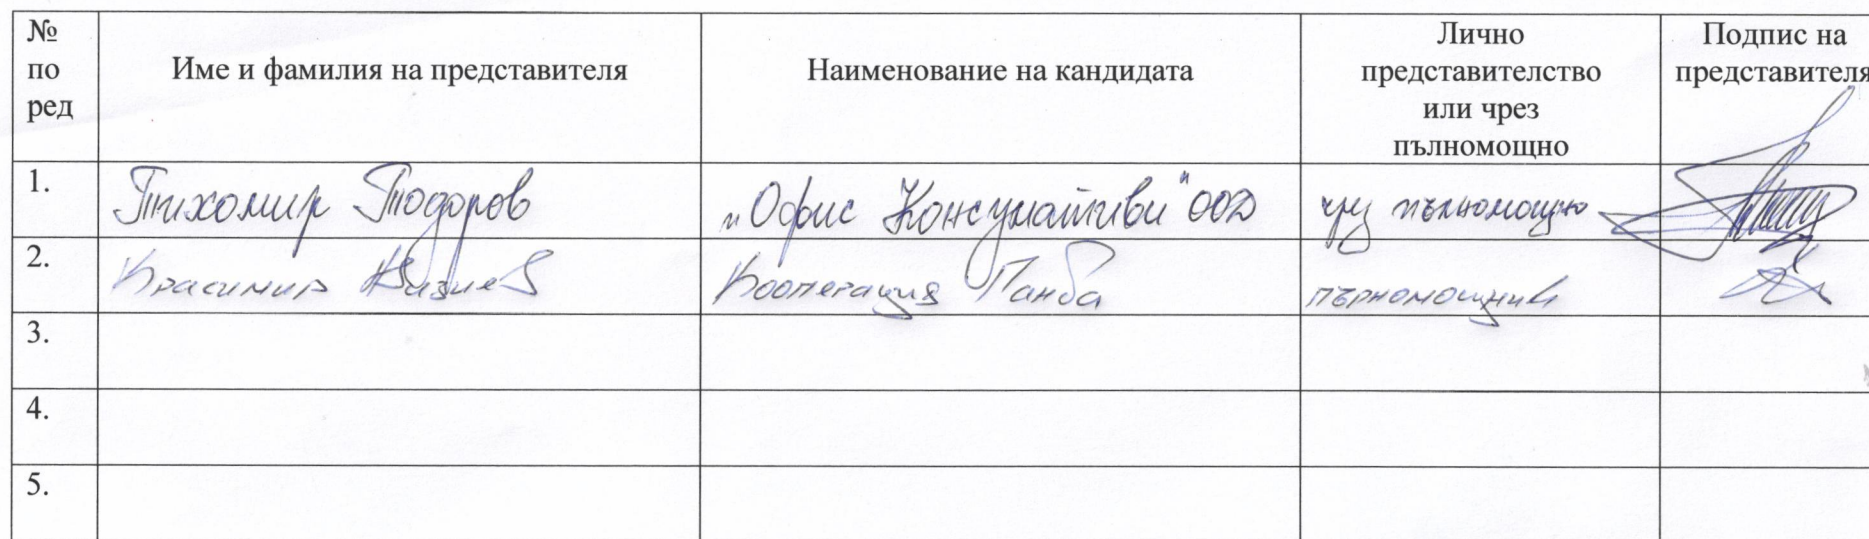 № по ред
Име и фамилия на представителя
Наименование на кандидата
Лично представителство или чрез пълномощно
Подпис на представителя
1. Тихомир Тодоров „Офис Консумативи" ООД чрез пълномощно
2. Красимир Кооперация Панда пълномощник
3.
4.
5.